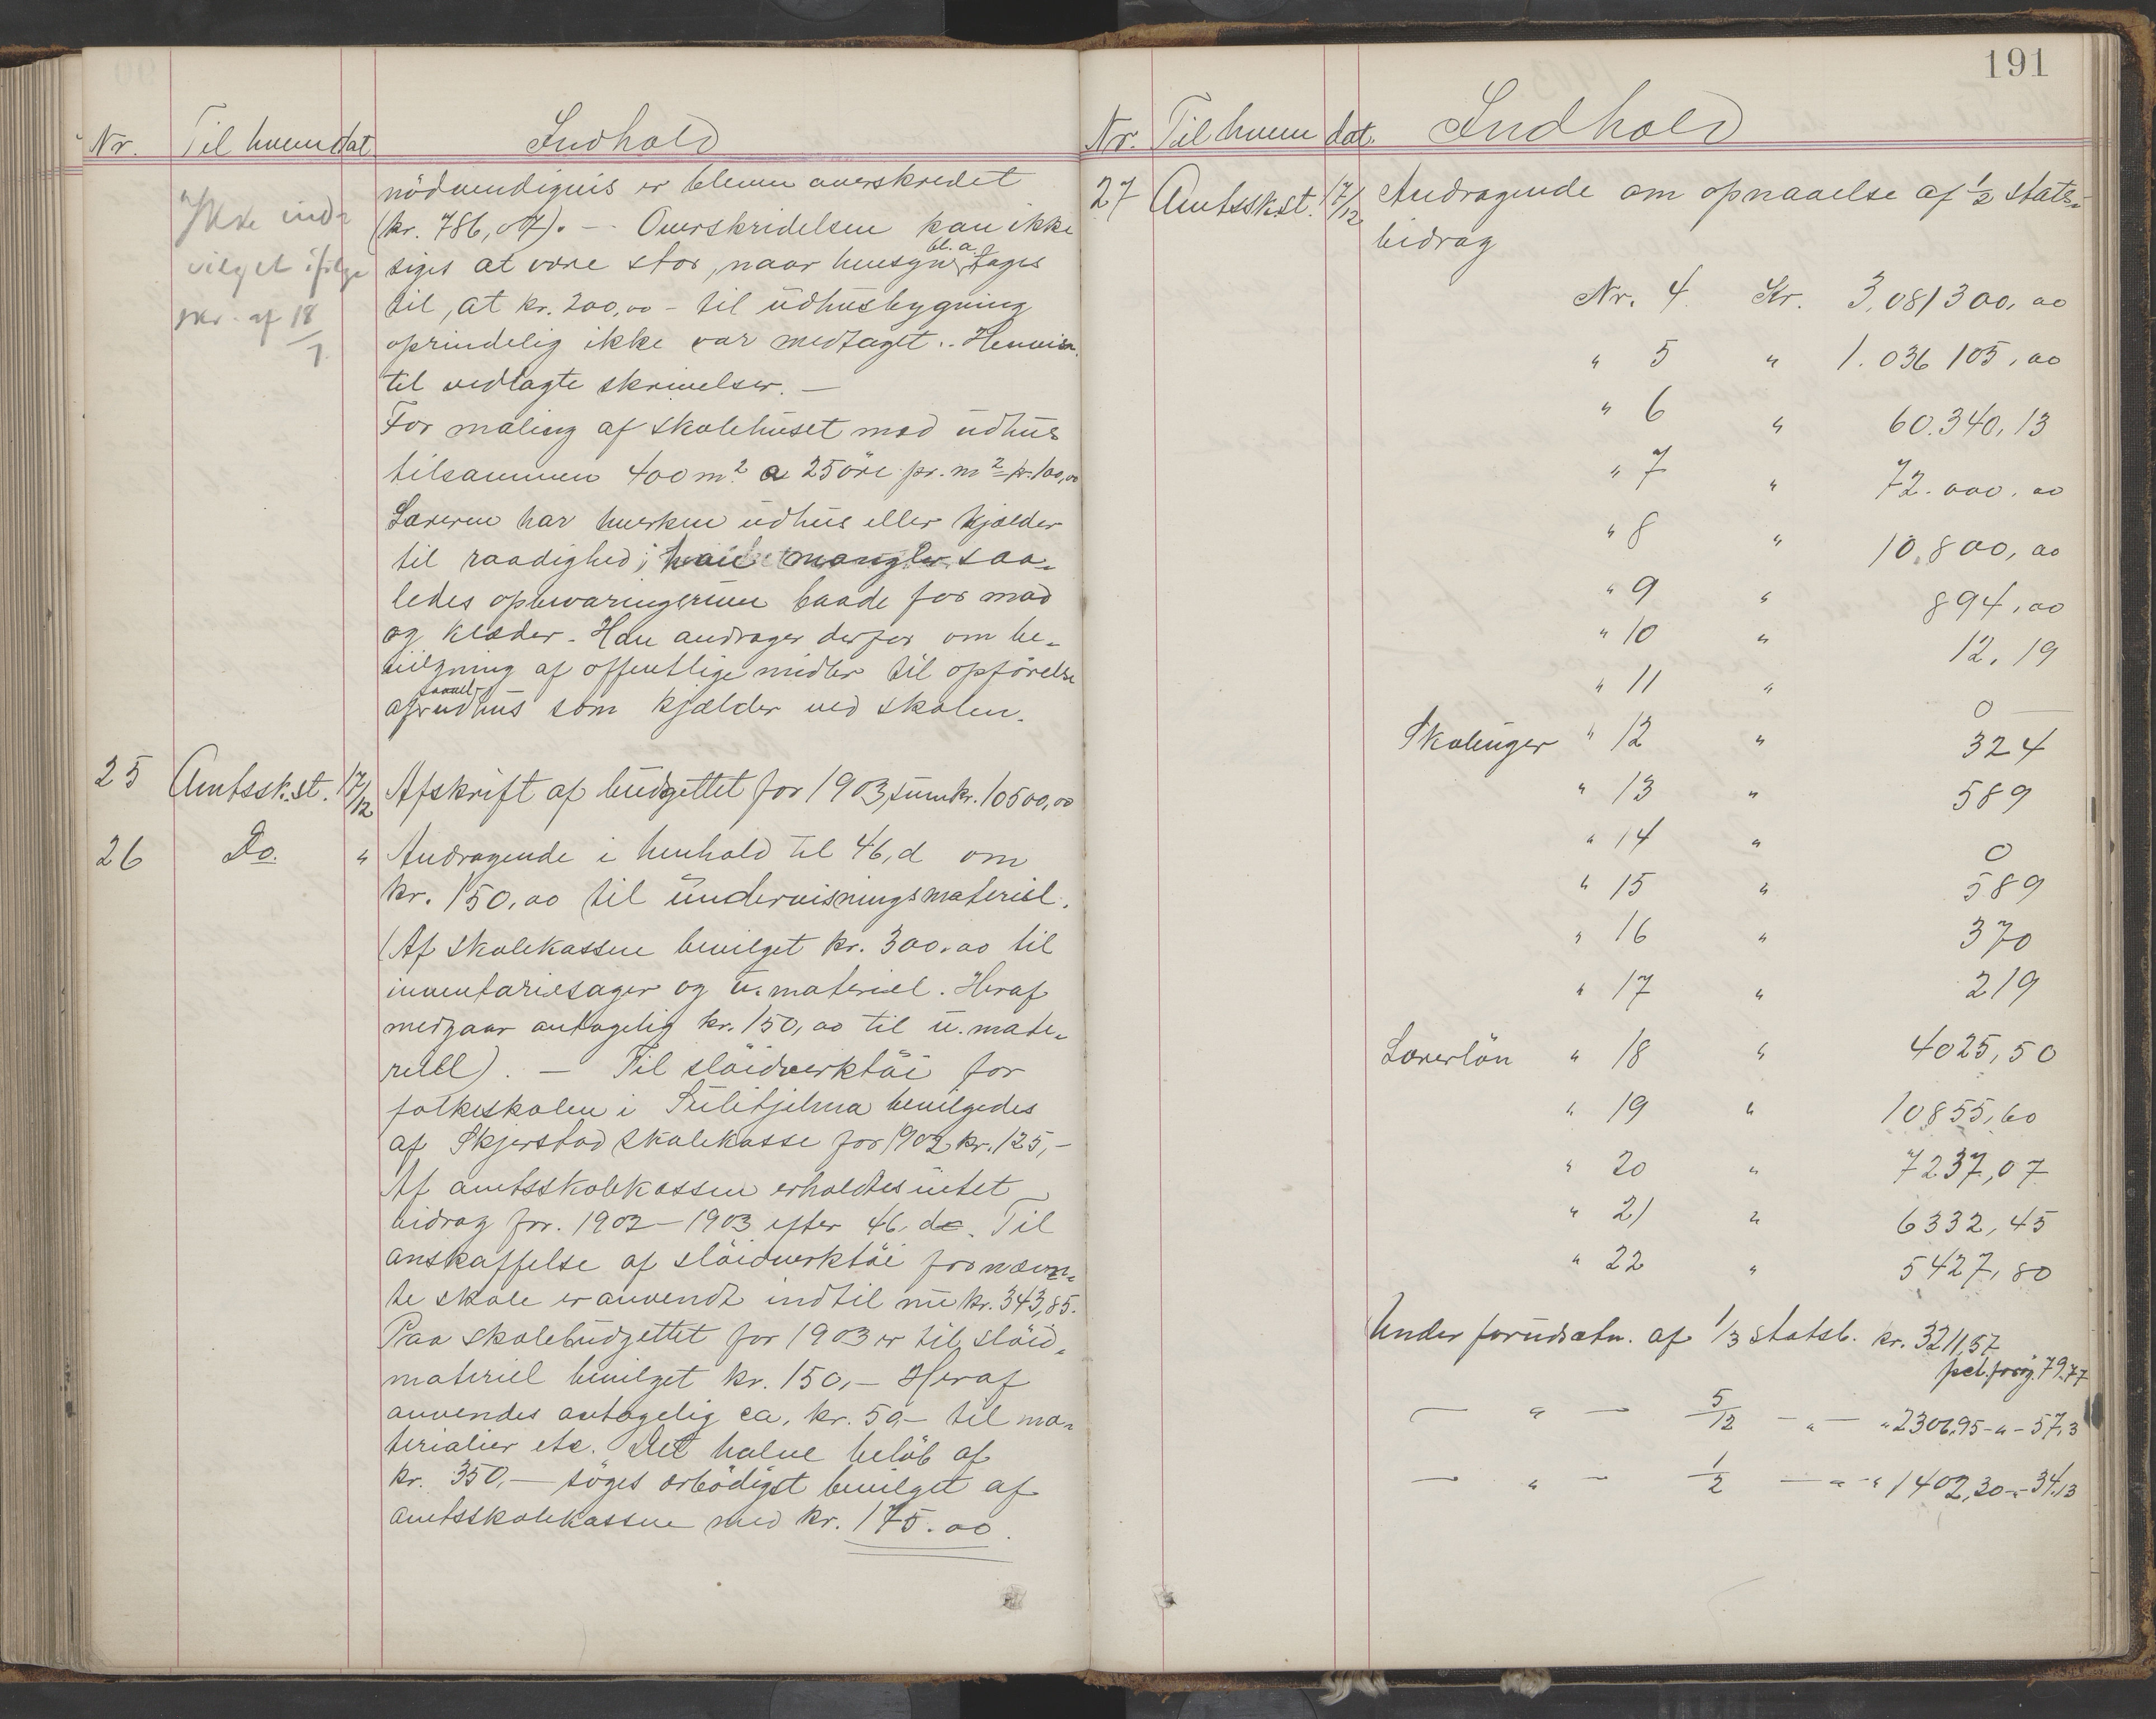 Nr. Til hvem dat. Indhold
nödvendigvis er bleven overskredet
(kr. 786,07). – Overskridelsen kan ikke
siges at være stor, naar hensyn bl. a. tages
til, at kr. 200,00 – til udhusbygning
oprindelig ikke var medtaget. – Henvisn.
til vedlagte skrivelser. –
For maling af skolehuset med udhus
tilsammen 400 m² a 25 öre pr. m² = kr. 100,00
Læreren har hverken udhus eller kjælder
til raadighed; han mangler saa-
ledes opbevaringsrum baade for mad
og klæder. Han andrager derfor om be-
vilgning af offentlige midler til opförelse
af saavel udhus som kjælder ved skolen.
Ikke ind-
vilget ifölge
skr. af 18/1
25 Amtssk.st. 17/12 Afskrift af budgettet for 1903, sum kr. 10500,00
26 Do. " Andragende i henhold til 46,d om
kr. 150,00 til undervisningsmateriel.
(Af skolekassen bevilget kr. 300,00 til
inventariesager og u. materiel. Heraf
medgaar antagelig kr. 150,00 til u. mate-
riell). – Til slöidverktöi for
folkeskolen i Sulitjelma bevilgedes
af Skjerstad skolekasse for 1902 kr. 125,–
Af amtsskolekassen erholdtes intet
bidrag for 1902–1903 efter 46, d. Til
anskaffelse af slöidverktöi for nævn-
te skole er anvendt indtil nu kr. 343,85.
Paa skolebudgettet for 1903 er til slöid-
materiel bevilget kr. 150,– Heraf
anvendes antagelig ca. kr. 50,– til ma-
terialier etc. Det halve belöb af
kr. 350,– söges ærbödigst bevilget af
amtsskolekassen med kr. 175.00.
191
Nr. Til hvem dat. Indhold
27 Amtssk.st. 17/12 Andragende om opnaaelse af 1/2 stats-
bidrag
Nr. 4 Kr. 3,081300,00
" 5 " 1.036105,00
" 6 " 60.340,13
" 7 " 72.000,00
" 8 " 10.800,00
" 9 " 894,00
" 10 " 12,19
" 11 " 0
Skoleuger " 12 " 324
" 13 " 589
" 14 " 0
" 15 " 589
" 16 " 370
" 17 " 219
Lærerlön " 18 " 4025,50
" 19 " 10855,60
" 20 " 7237,07
" 21 " 6332,45
" 22 " 5427,80
Under forudsætn. af 1/3 statsb. kr. 3211,57
pct. forög. 79.77
– " – 5/12 – " – " 2306,95 – " – 57,3
– " – 1/2 – " – " 1402,30 – " – 34.13